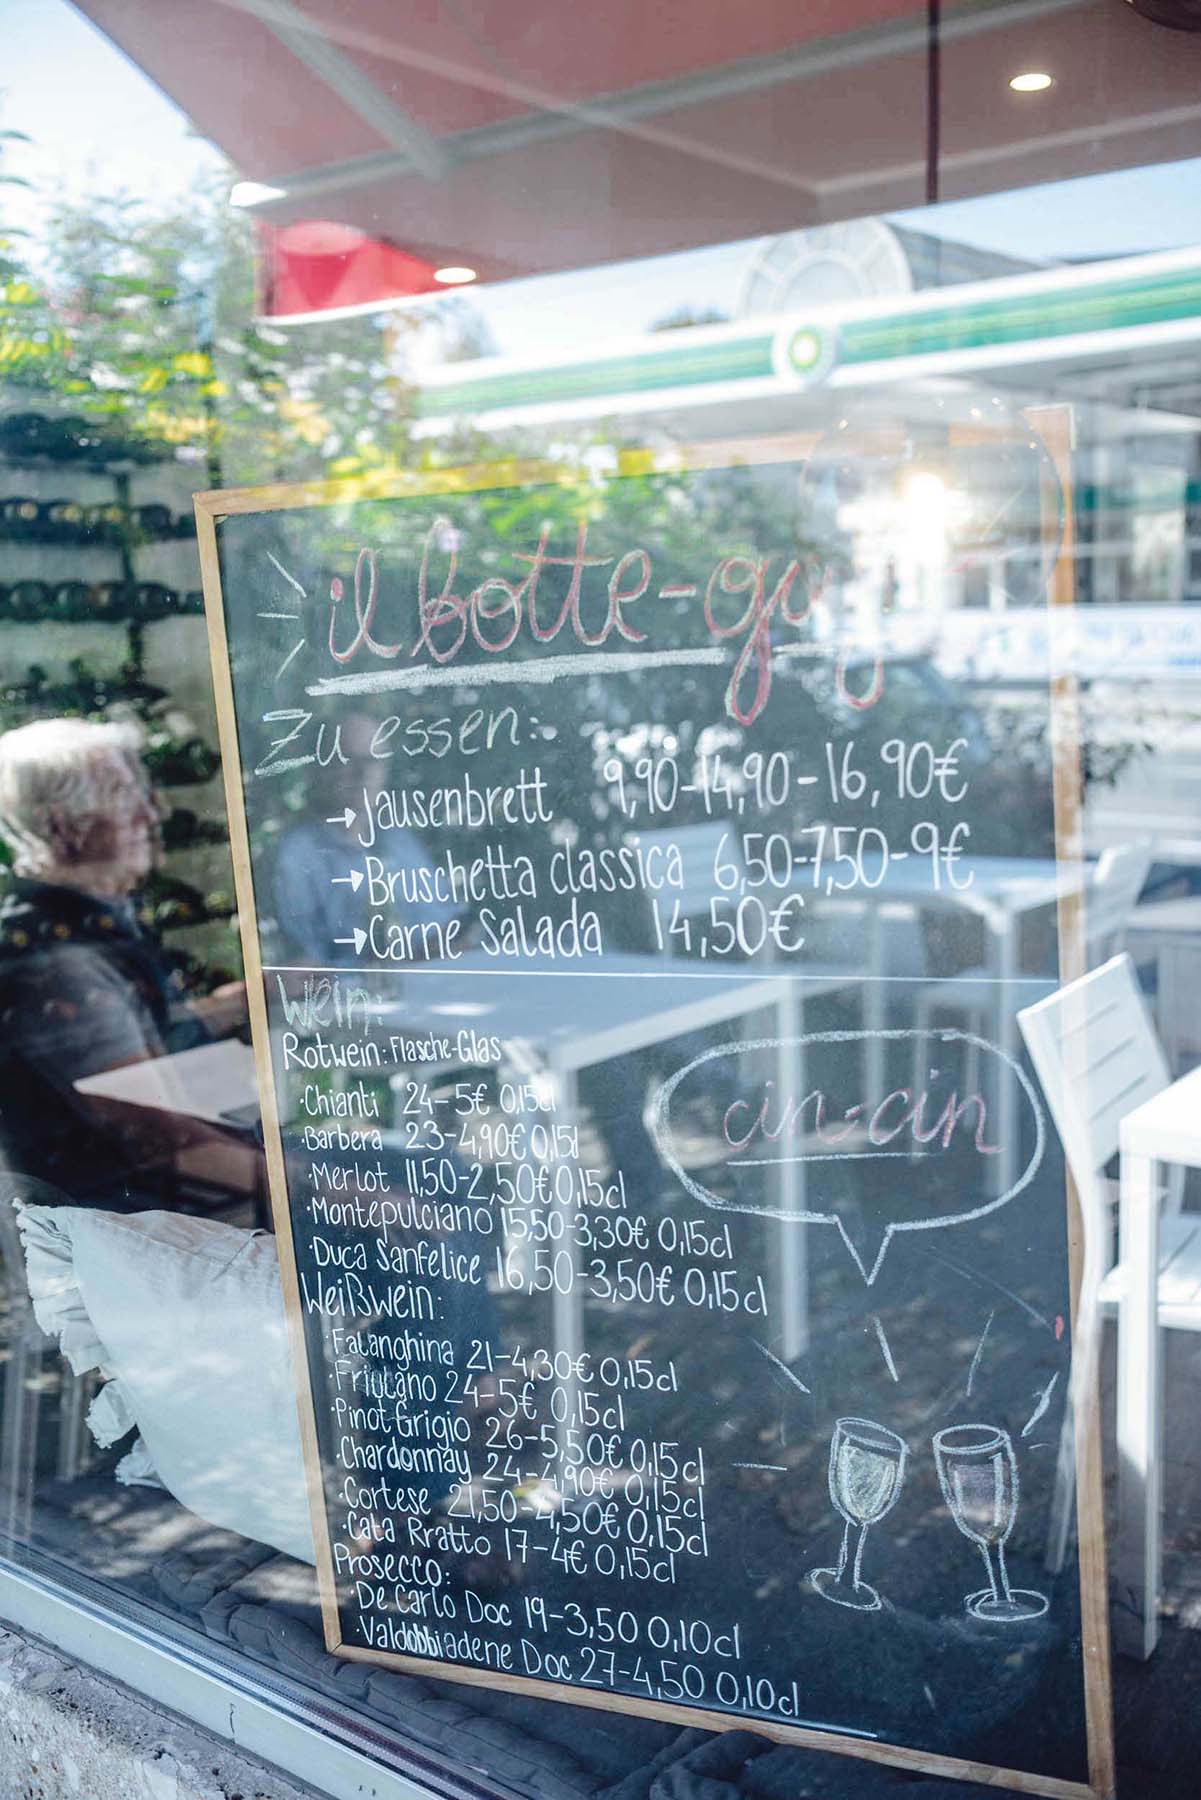 bp
il botte-guy
Zu essen:
→ Jausenbrett 9,90-14,90-16,90€
→ Bruschetta classica 6,50-7,50-9€
→ Carne Salada 14,50€
Wein:
Rotwein: Flasche-Glas
·Chianti 24-5€ 0,15cl
·Barbera 23-4,90€ 0,15cl
·Merlot 11,50-2,50€ 0,15cl
·Montepulciano 15,50-3,30€ 0,15cl
·Duca Sanfelice 16,50-3,50€ 0,15cl
Weißwein:
·Falanghina 21-4,30€ 0,15cl
·Friulano 24-5€ 0,15cl
·Pinot Grigio 26-5,50€ 0,15cl
·Chardonnay 24-4,90€ 0,15cl
·Cortese 21,50-4,50€ 0,15cl
·Cata Rratto 17-4€ 0,15cl
Prosecco:
·De Carlo Doc 19-3,50 0,10cl
·Valdobbiadene Doc 27-4,50 0,10cl
cin-cin